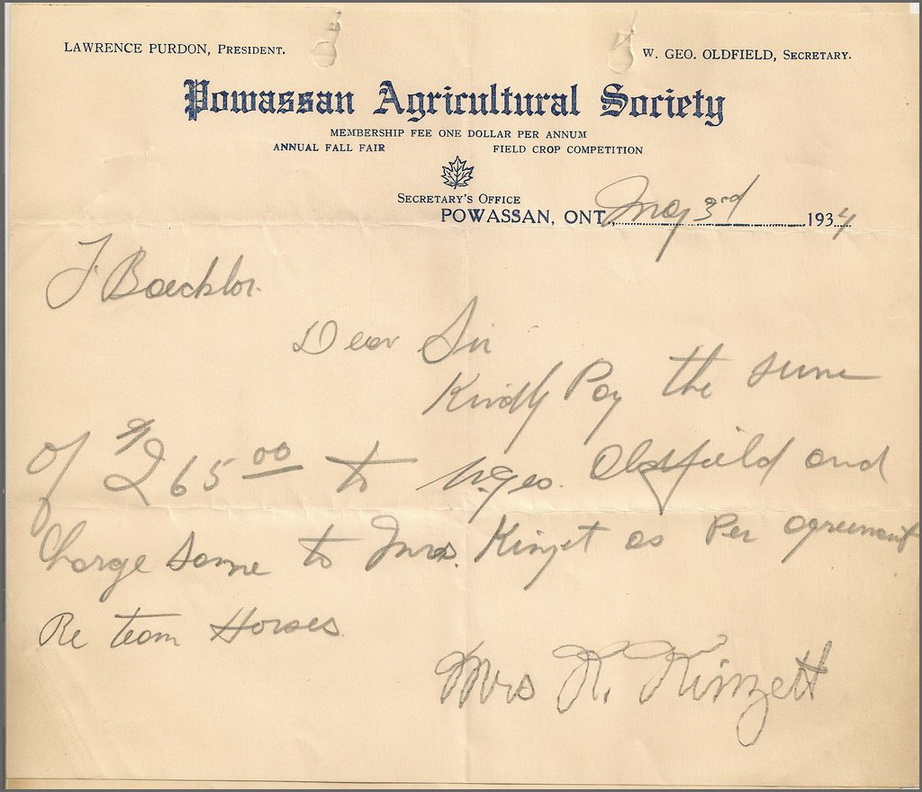 LAWRENCE PURDON, PRESIDENT. W. GEO. OLDFIELD, SECRETARY.
Powassan Agricultural Society
MEMBERSHIP FEE ONE DOLLAR PER ANNUM
ANNUAL FALL FAIR FIELD CROP COMPETITION
SECRETARY'S OFFICE
POWASSAN, ONT. May 3rd 1934
J Boecklor.
Dear Sir
Kindly Pay the sum
of $265 00 to W. Geo. Oldfield and
Charge same to Mrs. Kinzet as Per agreement
Re team Horses.
Mrs K. Kinzett